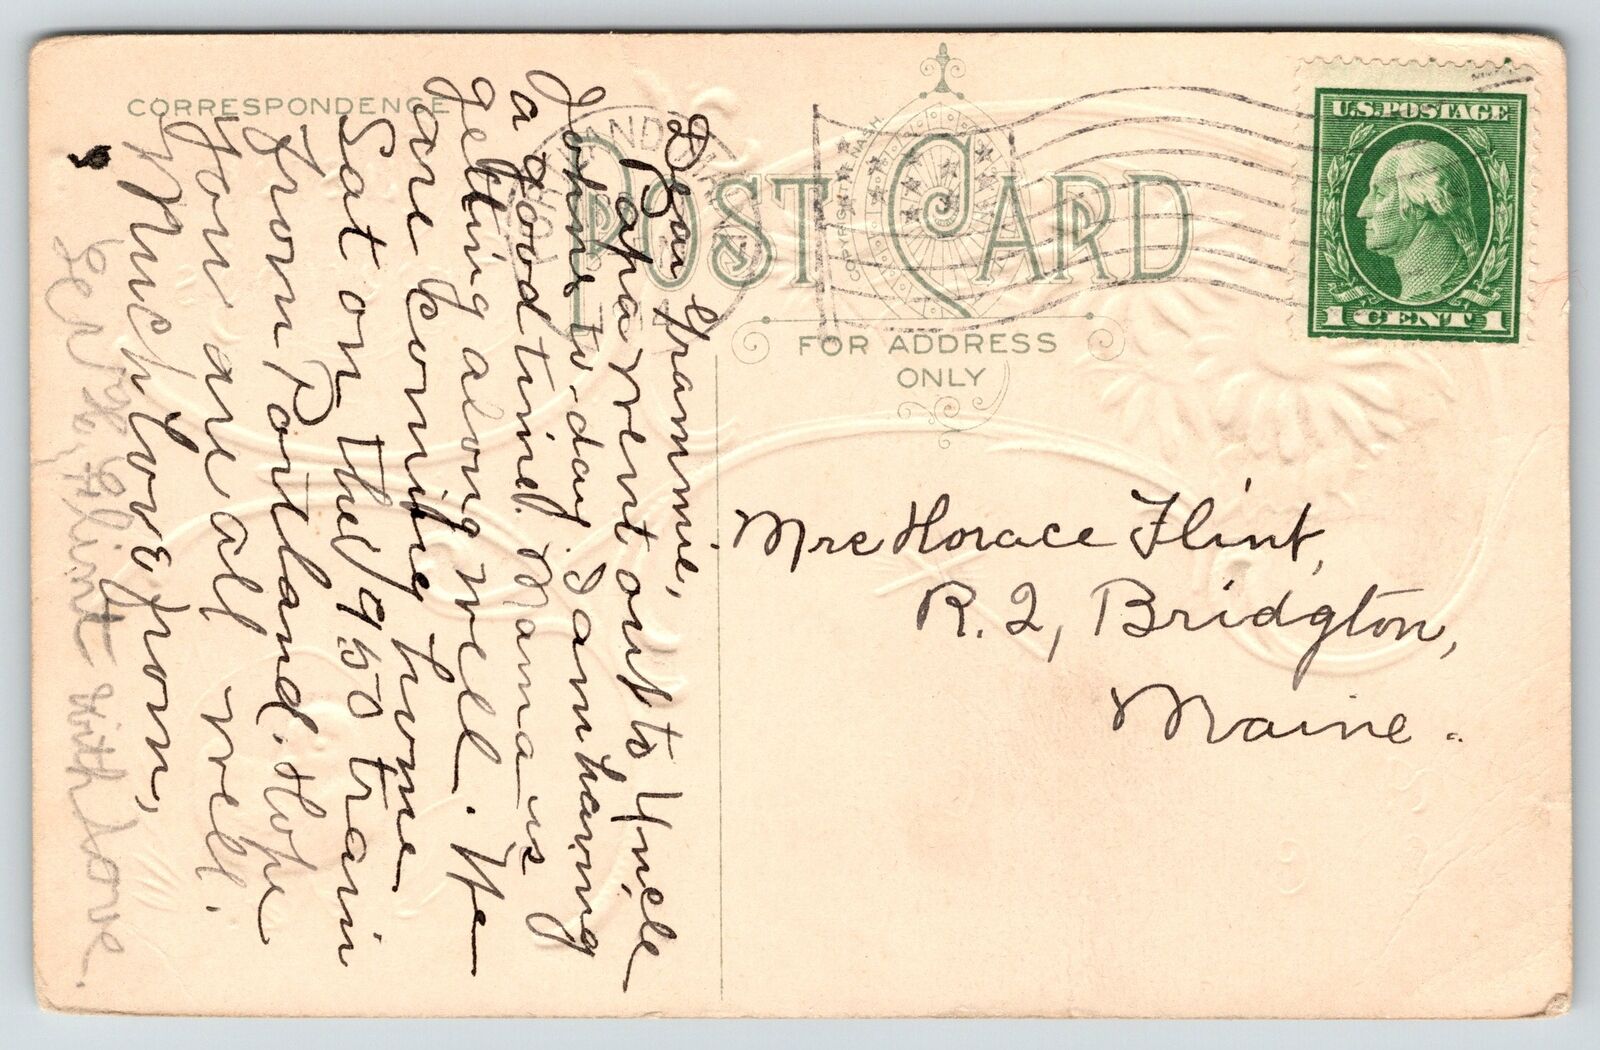 CORRESPONDENCE
POST CARD
COPYRIGHT E NASH
FOR ADDRESS
ONLY
U.S. POSTAGE
1 CENT 1
Dear Grammie,
Papa went out to Uncle
John to-day. I am having
a good time. Mama is
getting along well. We
are coming home
Sat on the 9 50 train
from Portland. Hope
you are all well.
Much love from,
Flint with love.
Mrs Horace Flint,
R. 2, Bridgton,
Maine.